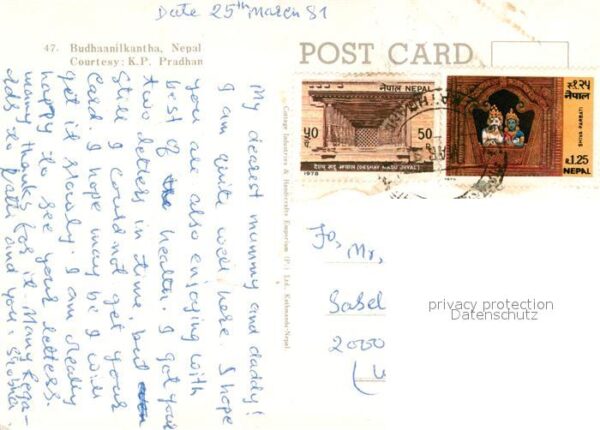 Date 25th March 81
47. Budhaanilkantha, Nepal
Courtesy: K.P. Pradhan
POST CARD
My dearest mummy and daddy!
I am quite well here. I hope
you are also enjoying with
best of the health. I got your
two letters in time, but even
still I could not get your
Card. I hope may be I will
get it slowly. I am really
happy to see your letters.
many thanks for it. Many Rega-
ads to Patti and you. Shobha
Cottage Industries & Handicrafts Emporium (P.) Ltd., Kathmandu-Nepal
नेपाल NEPAL
५०
50
1978
रु१.२५
नेपाल
R1.25
NEPAL
To,
Mr,
Sasel
2000
privacy protection
Datenschutz